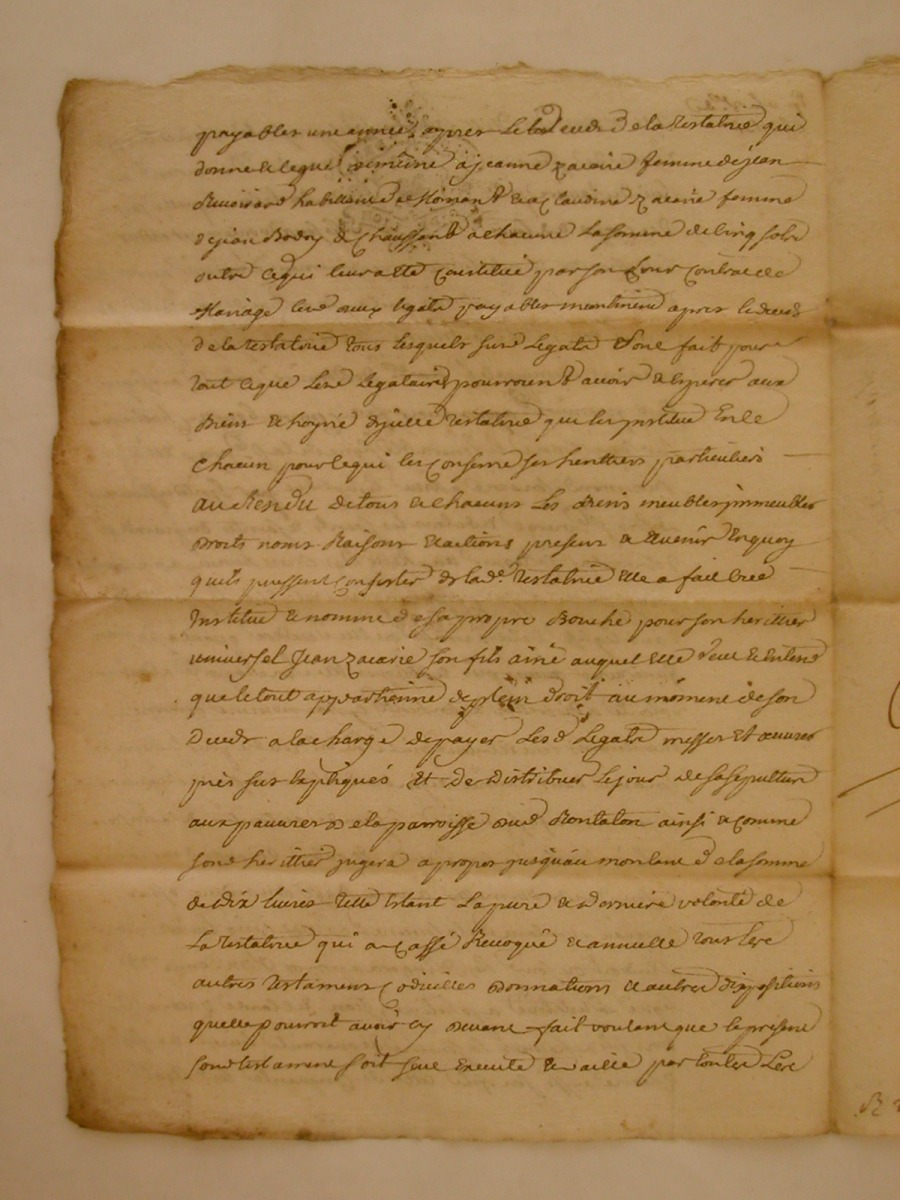 payables une année apres le deceds de la testatrice qui
donne & legue de même a jeanne zacarie femme de jean
habitant de Mornant & a Claudine zacarie femme
de jean Bodoy de Chaussant a chacune la somme de cinq sols
outre ce qui leur a été constitué par son leur contrat de
Mariage les deux legats payables apres le deceds
de la testatrice tous lesquels susd legats sont fait pour
tout ce que lesd legataires pourront avoir & esperer aux
Biens & hoyrie d'icelle testatrice qui les institue en ce
chacun pour ce qui les conserne ses heritiers particuliers
au Residu de tous & chacuns les Biens meubles immeubles
droits noms Raisons & actions present & avenir en quoy
qu'ils puissent consister de lad. testatrice elle a fait créé
institué & nommé de sa propre Bouche pour son herittier
universel Jean zacarie son fils ainé auquel elle veut & entend
que le tout appartienne de plein droit au moment de son
Deceds a la charge de payer lesd Legats messes et œuvres
pies sus expliqués et de distribuer le jour de sa sepulture
aux pauvres de la parroisse dud Rontalon ainsi & comme
sond herittier jugera a propos jusqu'au montant de la somme
de dix livres telle étant la pure & derniere volonté de
La testatrice qui a cassé Revoqué & annullé tous ses
autres testaments codicilles donnations & autres dispositions
quelle pourroit avoir cy devant fait voulant que le present
sond testament soit seul executé & vaille par toutes les